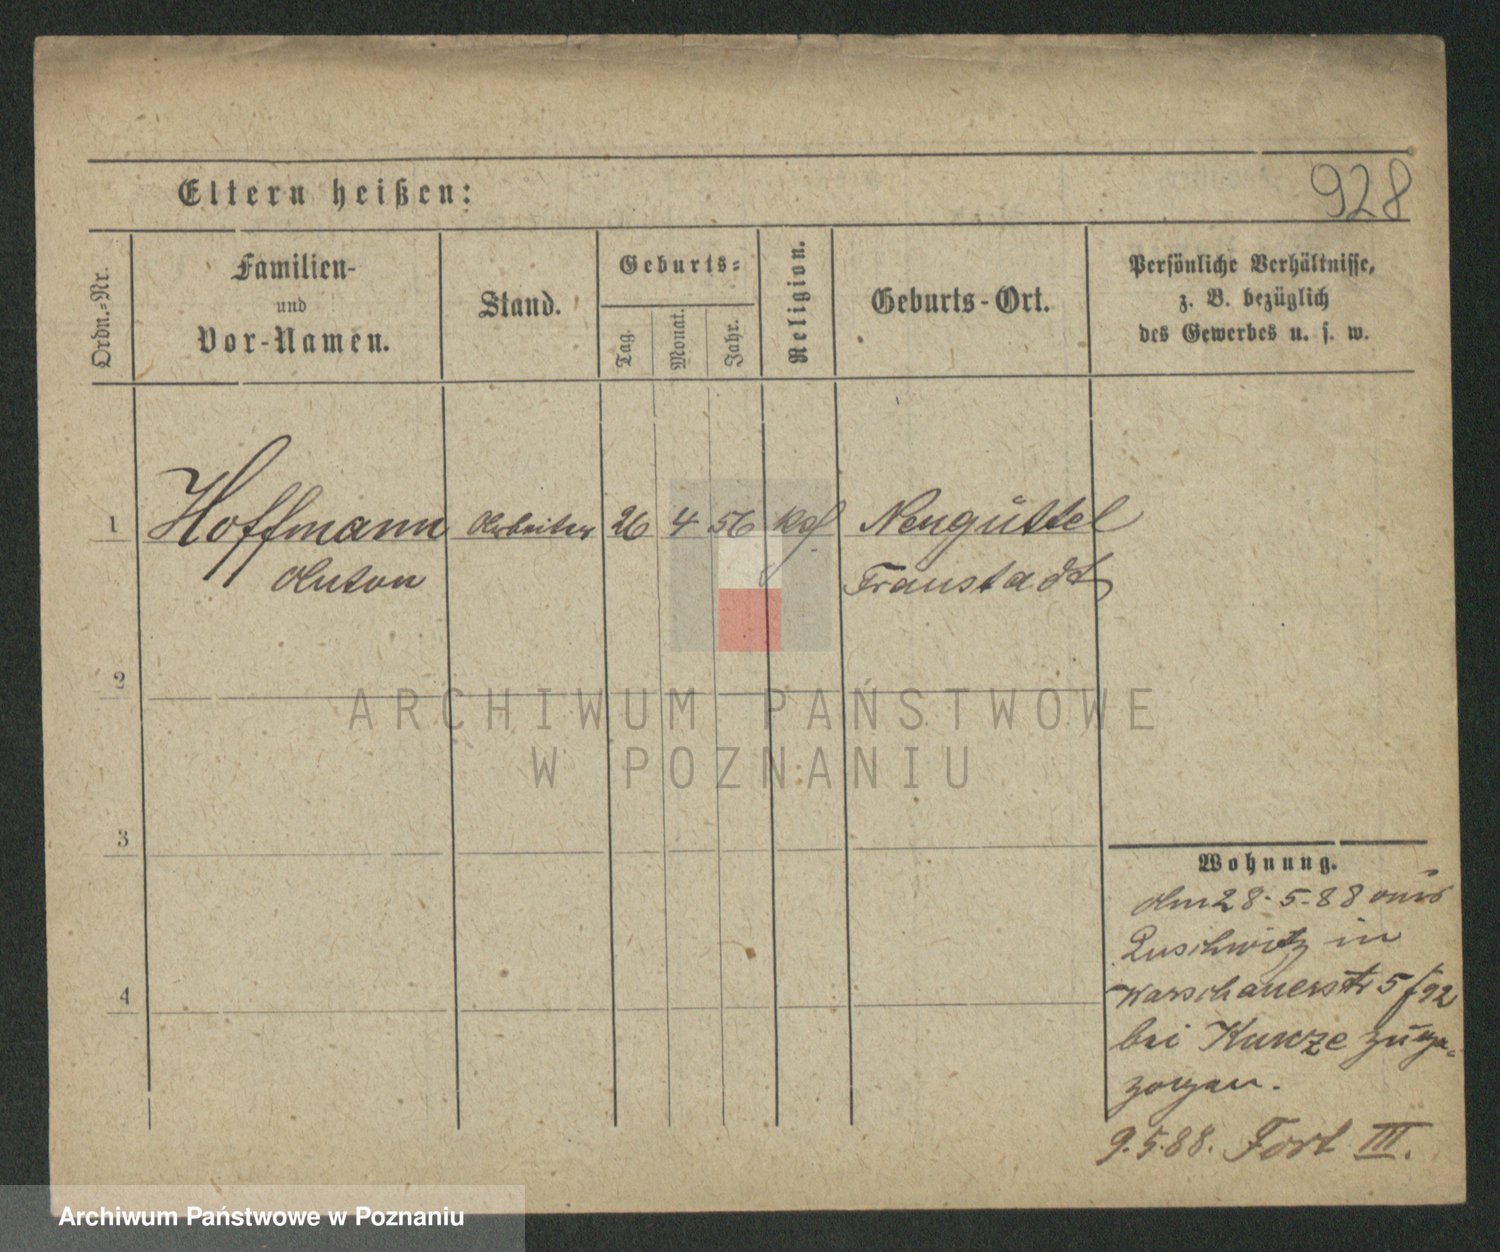 928
Eltern heißen:
Ordn.-Nr.
Familien-
und
Vor-Namen.
Stand.
Geburts-
Tag.
Monat.
Jahr.
Religion.
Geburts-Ort.
Persönliche Verhältnisse,
z. B. bezüglich
des Gewerbes u. s. w.
1 Hoffmann Arbeiter 26 4 56 kgf Neugüttel
Anton Fraustadt
2
3
4
Wohnung.
Am 28.5.88 aus
Luschwitz in
Warschauerstr 5/92
bei Kunze zuge-
zogen.
9.5.88. Fort III.
ARCHIWUM PAŃSTWOWE
W POZNANIU
Archiwum Państwowe w Poznaniu